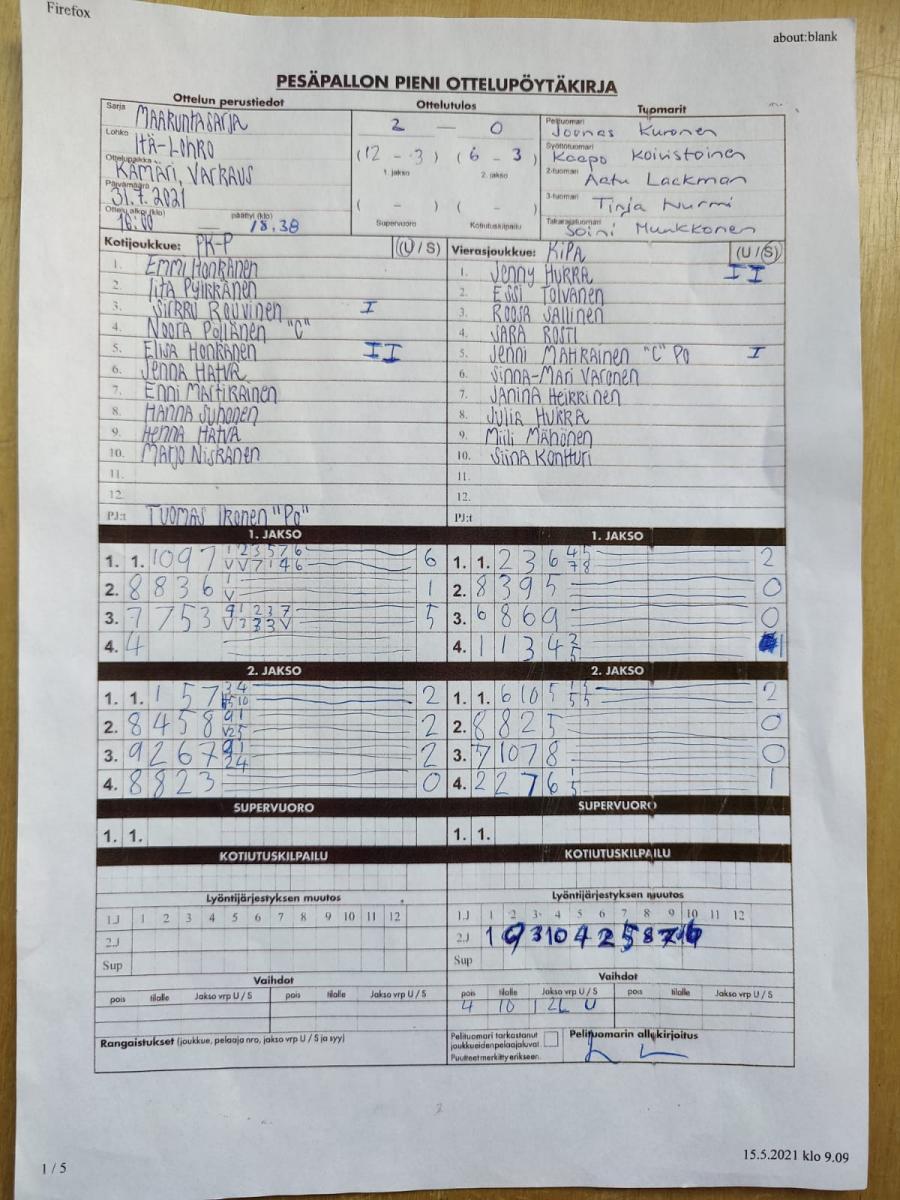 Firefox
about:blank
PESÄPALLON PIENI OTTELUPÖYTÄKIRJA
Ottelun perustiedot
Sarja MAAKUNTASARJA
Lohko ITÄ-LOHKO
Ottelupaikka KÄMÄRI, VARKAUS
Päivämäärä 31.7.2021
Ottelu alkoi (klo) 16.00 päättyi (klo) 18.38
Ottelutulos
2 — 0
(12 - 3) (6 - 3)
1. jakso 2. jakso
( - ) ( - )
Supervuoro Kotiutuskilpailu
Tuomarit
Pelituomari Joonas Kuronen
Syöttötuomari Kaapo Koivistoinen
2-tuomari Aatu Lackman
3-tuomari Tinja Nurmi
Takarajatuomari Soini Munkkonen
Kotijoukkue: PK-P (U / S)
1. Emmi Honkanen
2. Iita Pylkkänen
3. Sirkku Rouvinen I
4. Noora Pöllänen "C"
5. Elisa Honkanen II
6. Jenna Hatva
7. Enni Martikainen
8. Hanna Juhonen
9. Henna Hatva
10. Marjo Niskanen
11.
12.
PJ:t Tuomas Ikonen "Po"
Vierasjoukkue: KiPa (U / S)
1. Jenny Hukka II
2. Essi Tolvanen
3. Roosa Sallinen
4. Sara Rosti
5. Jenni Mahkainen "C" Po I
6. Sinna-Mari Varonen
7. Janina Heikkinen
8. Julia Hukka
9. Miili Mähönen
10. Siina Kontturi
11.
12.
PJ:t
1. JAKSO
1. 1. 10 9 7 6
2. 8 8 3 6 1
3. 7 7 5 3 5
4. 4
1. JAKSO
1. 1. 2 3 6 2
2. 8 3 9 5 0
3. 6 8 6 9 0
4. 1 1 3 4 1
2. JAKSO
1. 1. 1 5 7 2
2. 8 4 5 8 2
3. 9 2 6 7 2
4. 8 8 2 3 0
2. JAKSO
1. 1. 6 10 5 2
2. 8 8 2 5 0
3. 7 10 7 8 0
4. 2 2 7 6 1
SUPERVUORO
1. 1.
SUPERVUORO
1. 1.
KOTIUTUSKILPAILU
KOTIUTUSKILPAILU
Lyöntijärjestyksen muutos
1.J 1 2 3 4 5 6 7 8 9 10 11 12
2.J
Sup
Lyöntijärjestyksen muutos
1.J 1 2 3 4 5 6 7 8 9 10 11 12
2.J 1 9 3 10 4 2 5 8 7 6
Sup
Vaihdot
pois tilalle Jakso vrp U / S pois tilalle Jakso vrp U / S
Vaihdot
pois tilalle Jakso vrp U / S pois tilalle Jakso vrp U / S
4 10 1 2L U
Rangaistukset (joukkue, pelaaja nro, jakso vrp U / S ja syy)
Pelituomari tarkastanut
joukkueiden pelaajaluvat.
Puutteet merkitty erikseen.
Pelituomarin allekirjoitus
1 / 5
15.5.2021 klo 9.09